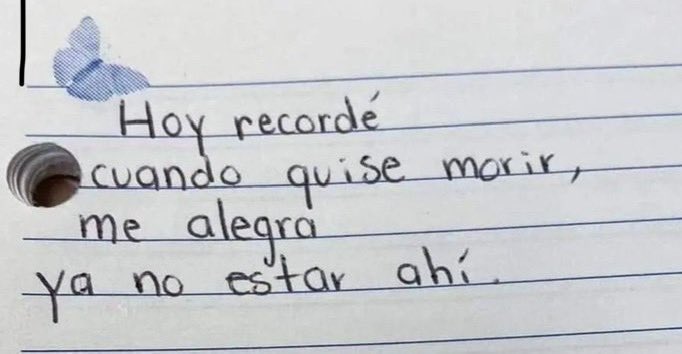 Hoy recordé
cuando quise morir,
me alegra
ya no estar ahí.